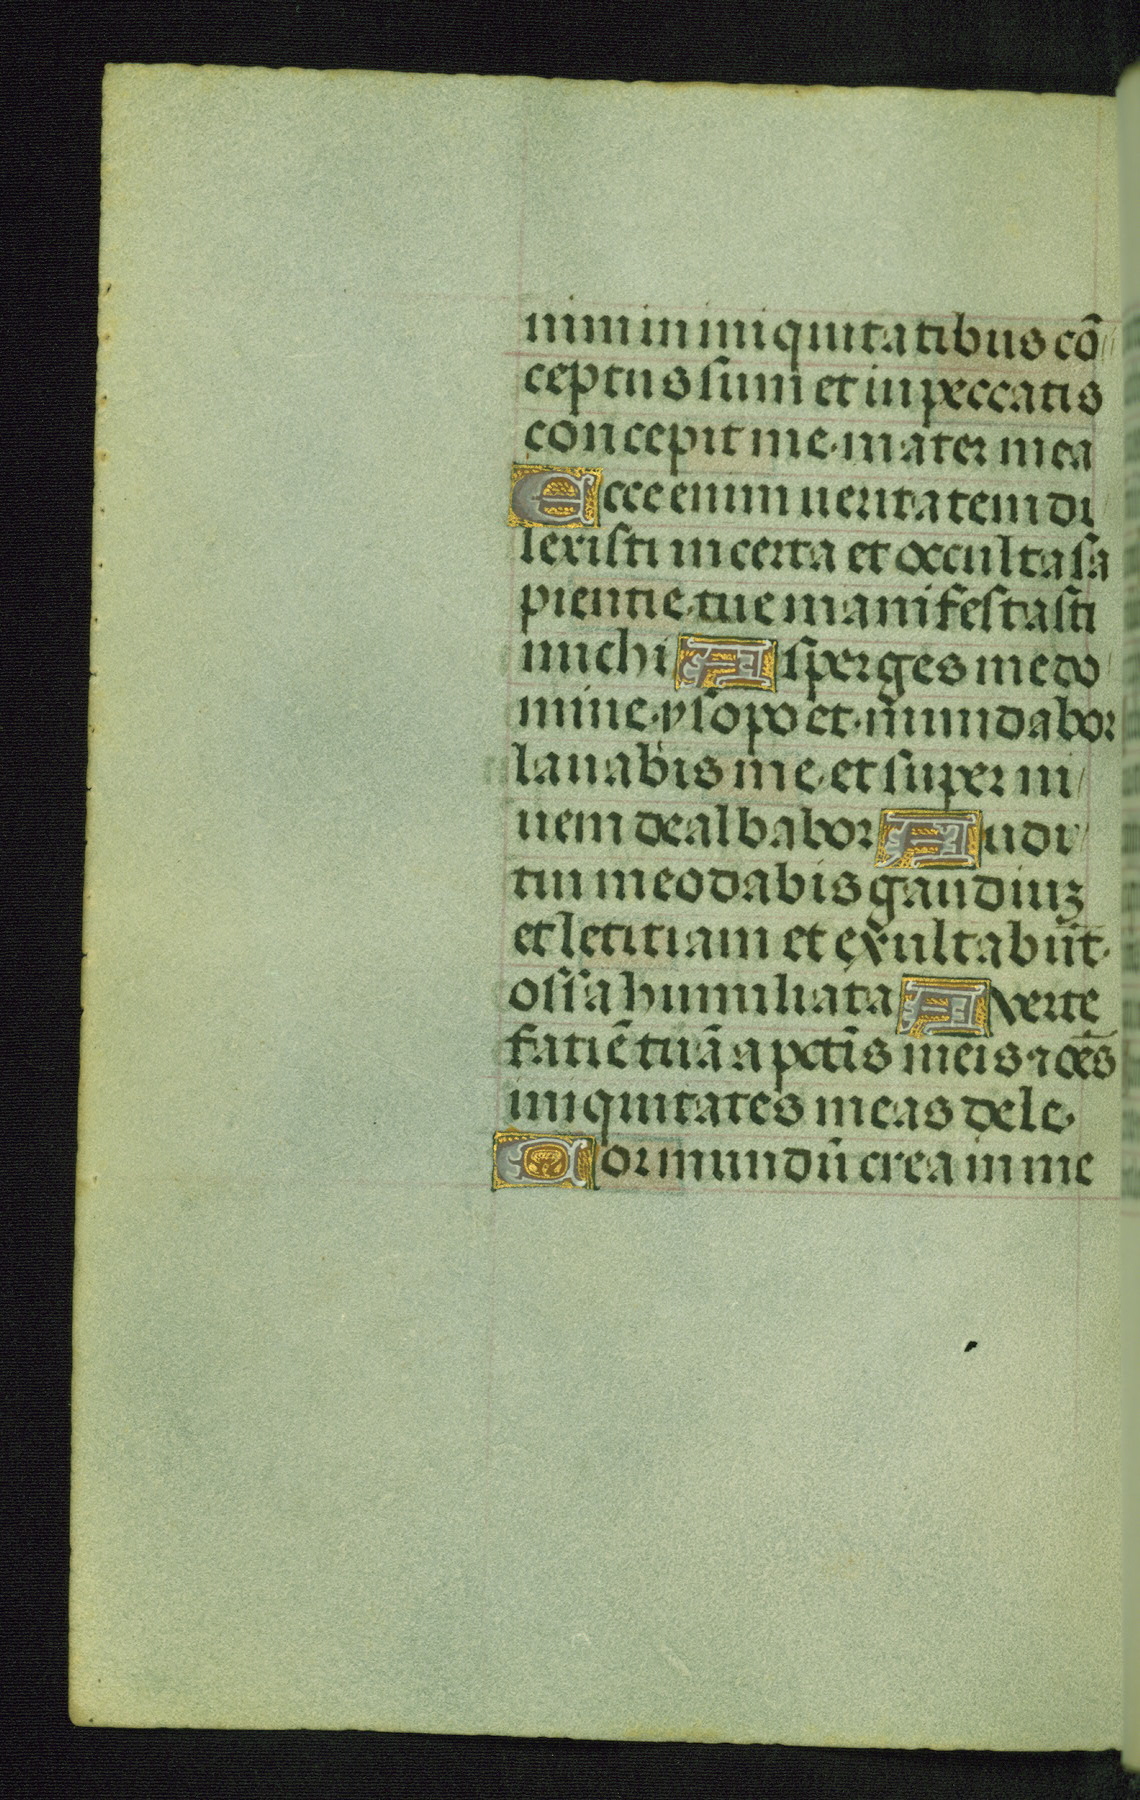 nim in iniquitatibus cō
ceptus sum et in peccatis
concepit me mater mea
Ecce enim ueritatem di
lexisti incerta et occulta sa
pientie tue manifestasti
michi Asperges me do
mine ysopo et mundabor
lauabis me et super ni
uem dealbabor Audi
tui meo dabis gaudiuꝫ
et letitiam et exultabūt
ossa humiliata Averte
fatiē tuā a pctīs meis ⁊ oēs
iniquitates meas dele
Cor mundū crea in me